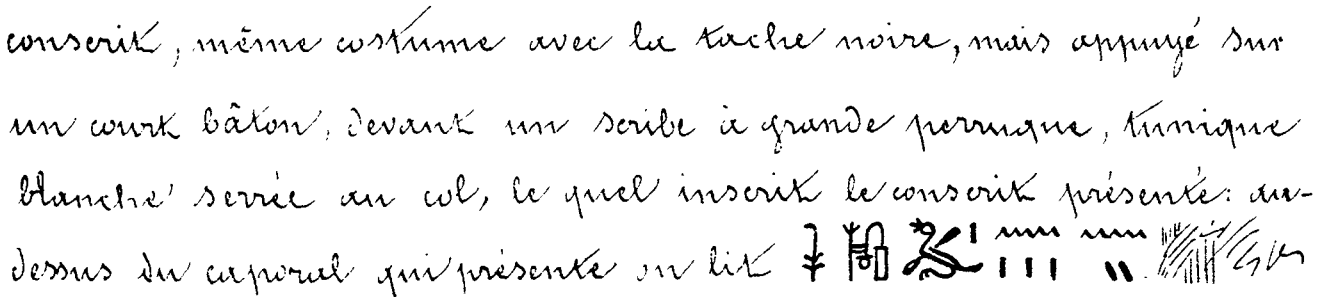 conscrit, même costume avec la tache noire, mais appuyé sur
un court bâton, devant un scribe à grande perruque, tunique
blanche serrée au col, le quel inscrit le conscrit présenté: au-
dessus du caporal qui présente on lit